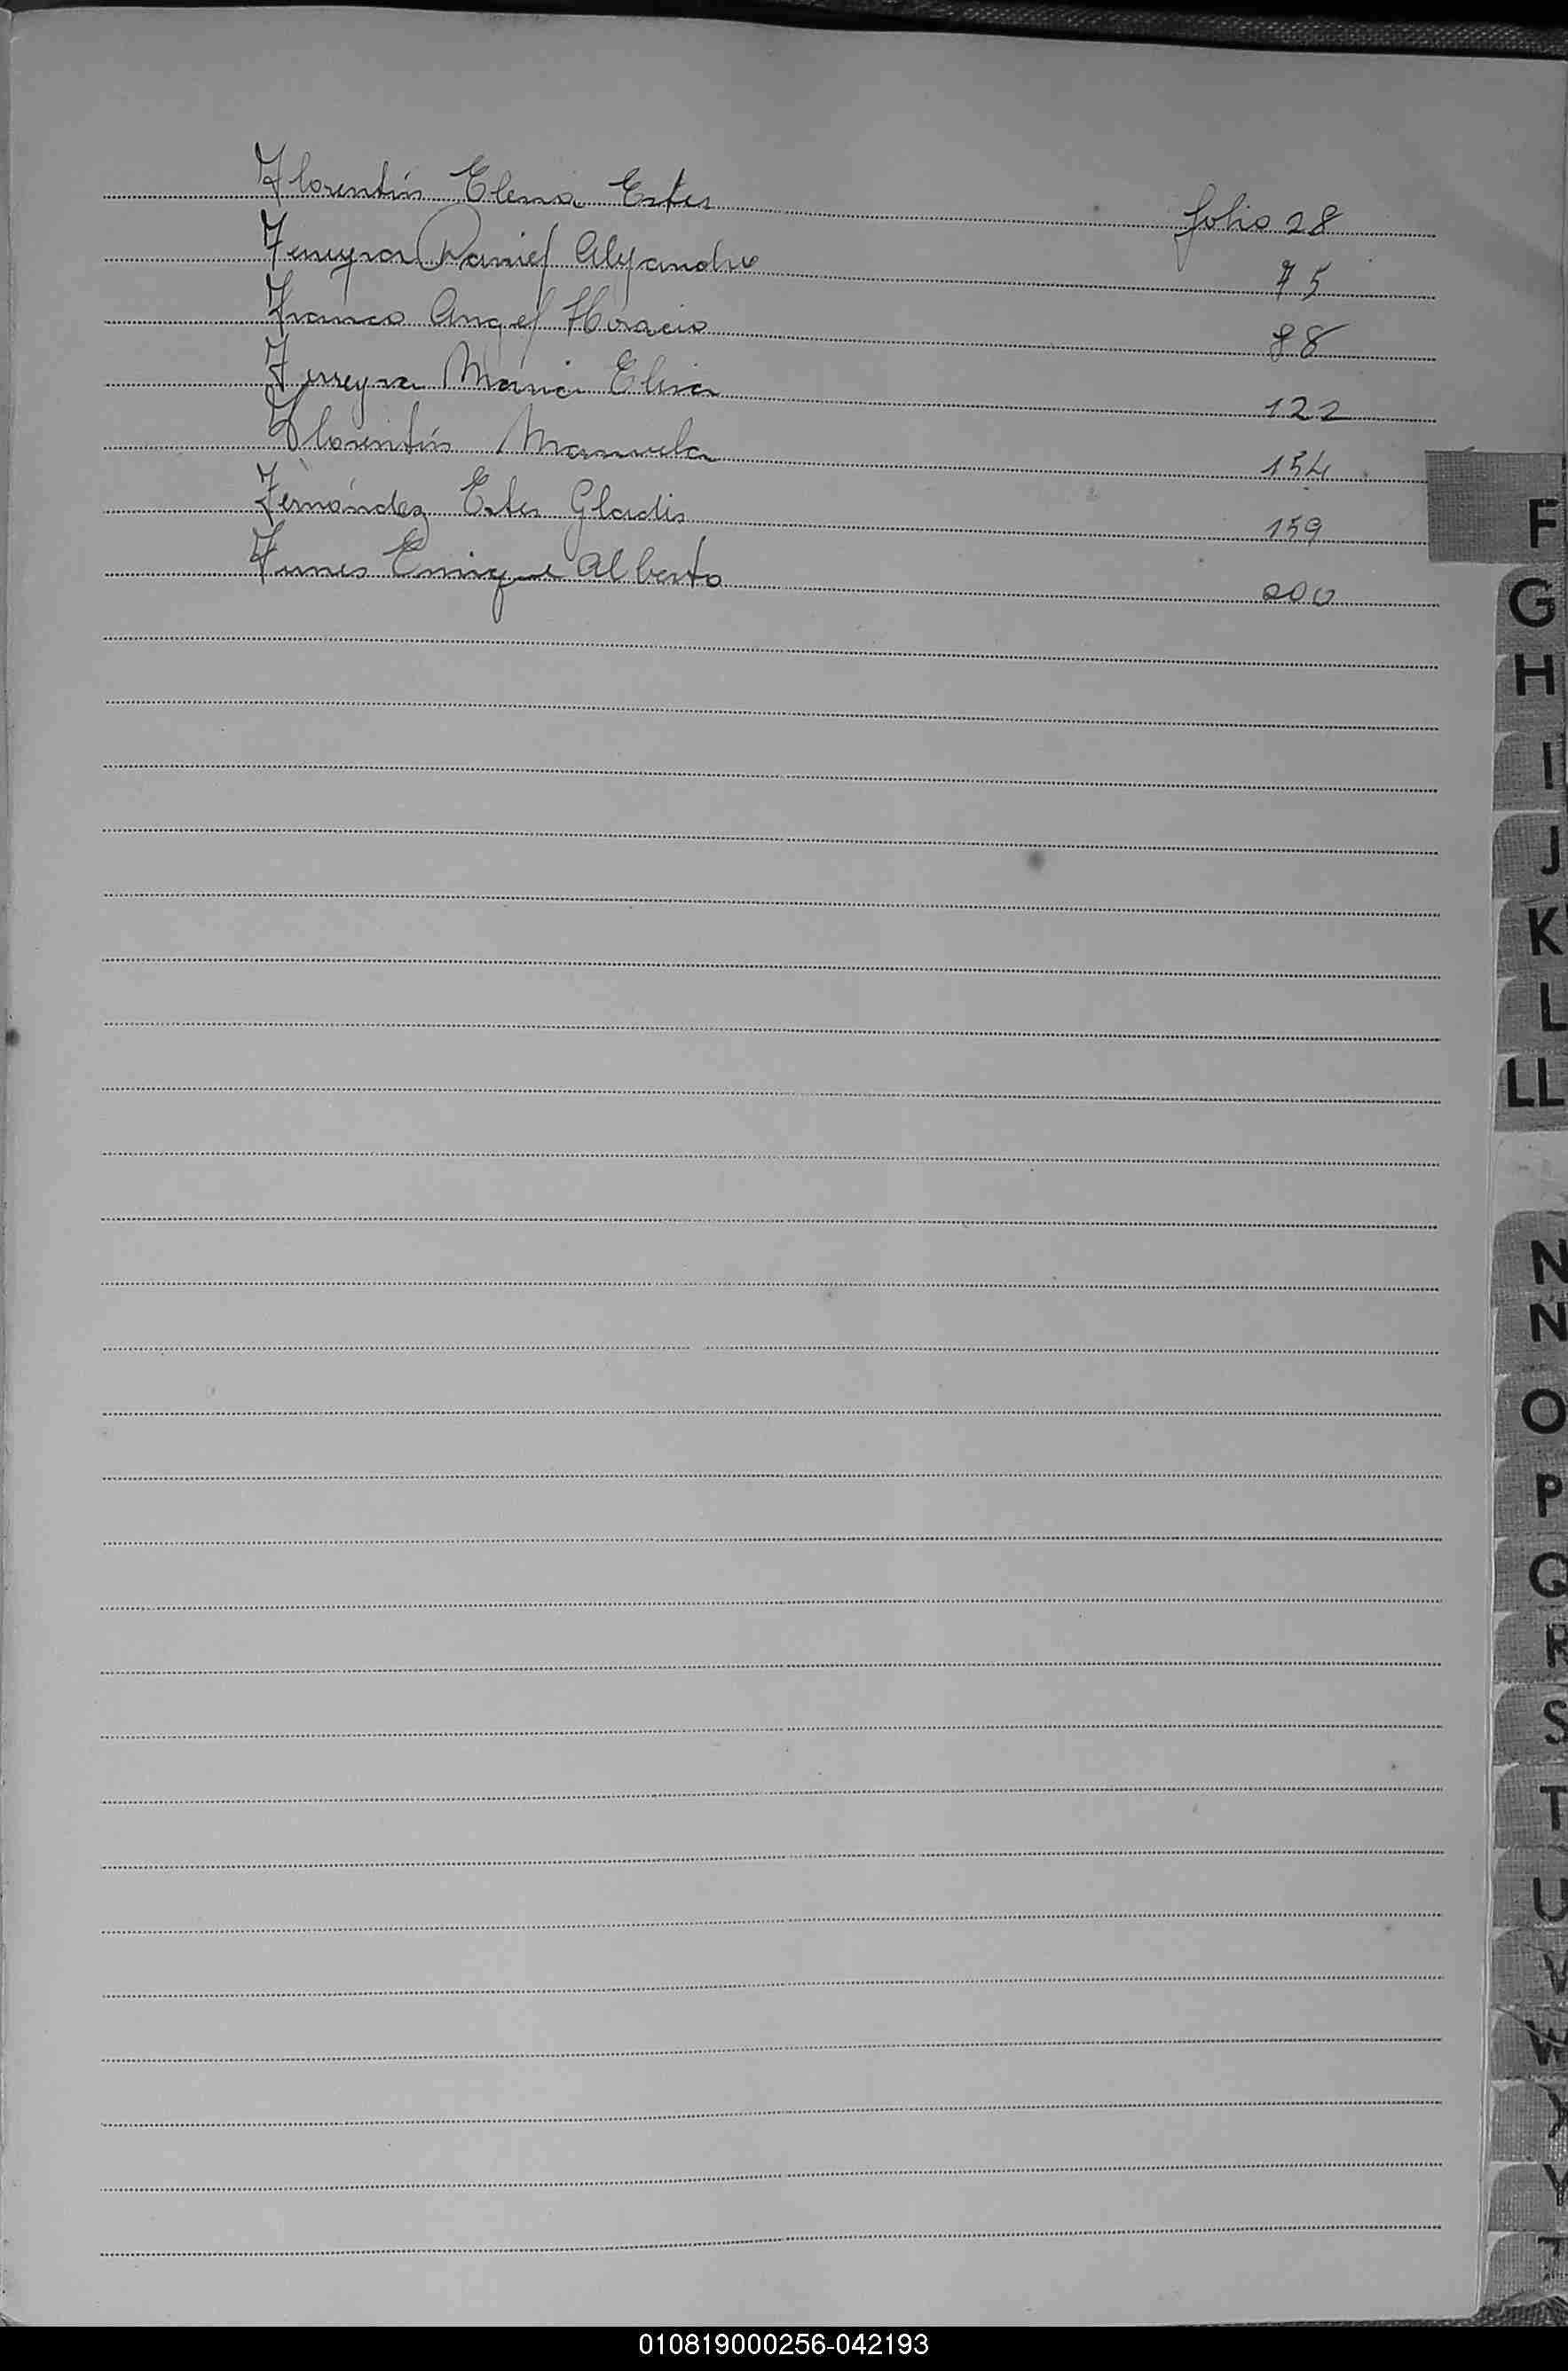 Florentín Elena Ester folio 28
Ferreyra Daniel Alejandro 75
Franco Angel Horacio 88
Ferreyra María Elisa 122
Florentín Manuela 154
Fernández Ester Gladis 159
Funes Enrique Alberto 200
F
G
H
I
J
K
L
LL
N
N
O
P
Q
R
S
T
U
V
W
Y
010819000256-042193